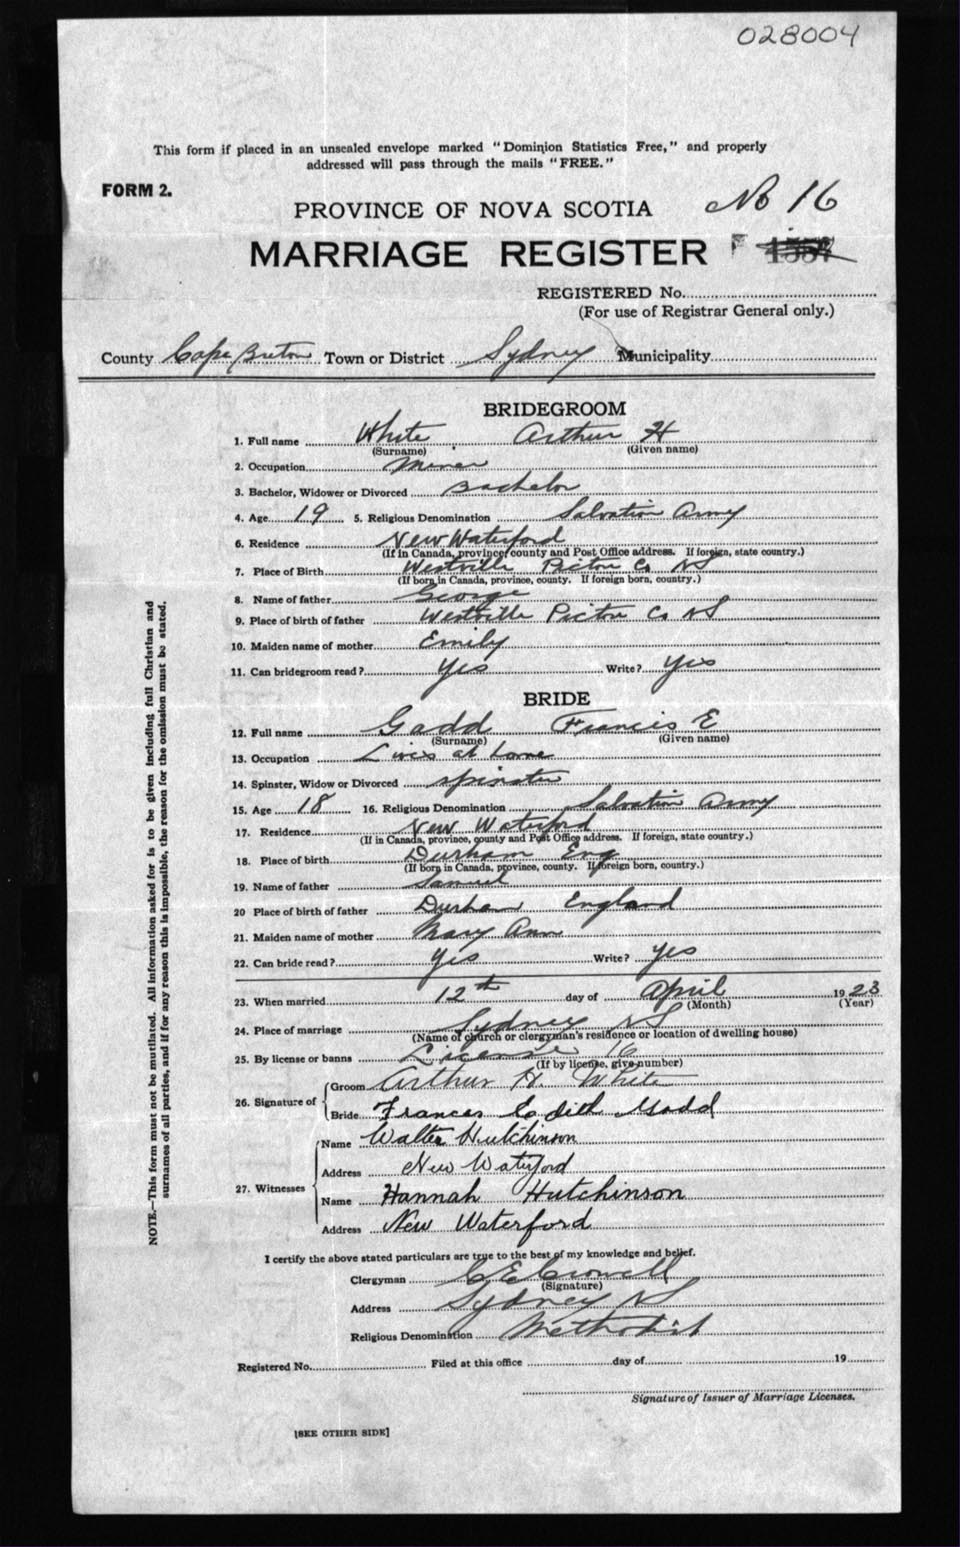 028004
This form if placed in an unsealed envelope marked "Dominion Statistics Free," and properly
addressed will pass through the mails "FREE."
FORM 2.
PROVINCE OF NOVA SCOTIA No 16
MARRIAGE REGISTER 1557
REGISTERED No.
(For use of Registrar General only.)
County Cape Breton Town or District Sydney Municipality
BRIDEGROOM
1. Full name White Arthur H
(Surname) (Given name)
2. Occupation Miner
3. Bachelor, Widower or Divorced Bachelor
4. Age 19 5. Religious Denomination Salvation Army
6. Residence New Waterford
(If in Canada, province, county and Post Office address. If foreign, state country.)
7. Place of Birth Westville Pictou Co NS
(If born in Canada, province, county. If foreign born, country.)
8. Name of father George
9. Place of birth of father Westville Pictou Co NS
10. Maiden name of mother Emily
11. Can bridegroom read? Yes Write? Yes
BRIDE
12. Full name Gadd Francis E
(Surname) (Given name)
13. Occupation Lives at home
14. Spinster, Widow or Divorced Spinster
15. Age 18 16. Religious Denomination Salvation Army
17. Residence New Waterford
(If in Canada, province, county and Post Office address. If foreign, state country.)
18. Place of birth Durham Eng
(If born in Canada, province, county. If foreign born, country.)
19. Name of father Samuel
20 Place of birth of father Durham England
21. Maiden name of mother Mary Ann
22. Can bride read? Yes Write? Yes
23. When married 12th day of April 1923
(Month) (Year)
24. Place of marriage Sydney NS
(Name of church or clergyman's residence or location of dwelling house)
25. By license or banns License 16
(If by license, give number)
26. Signature of Groom Arthur H. White
Bride Frances Edith Gadd
27. Witnesses Name Walter Hutchinson
Address New Waterford
Name Hannah Hutchinson
Address New Waterford
I certify the above stated particulars are true to the best of my knowledge and belief.
Clergyman C E Crowell
(Signature)
Address Sydney NS
Religious Denomination Methodist
Registered No. Filed at this office day of 19
Signature of Issuer of Marriage Licenses.
[SEE OTHER SIDE]
NOTE.—This form must not be mutilated. All information asked for is to be given including full Christian and
surnames of all parties, and if for any reason this is impossible, the reason for the omission must be stated.